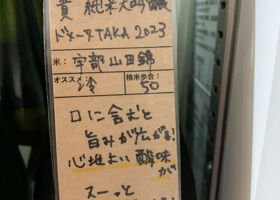 貴 純米大吟醸
ドメーヌTAKA 2023
米: 宇部山田錦
オススメ: 冷
精米歩合: 50
口に含むと
旨みが広がる!
心地よい酸味が
スーっと